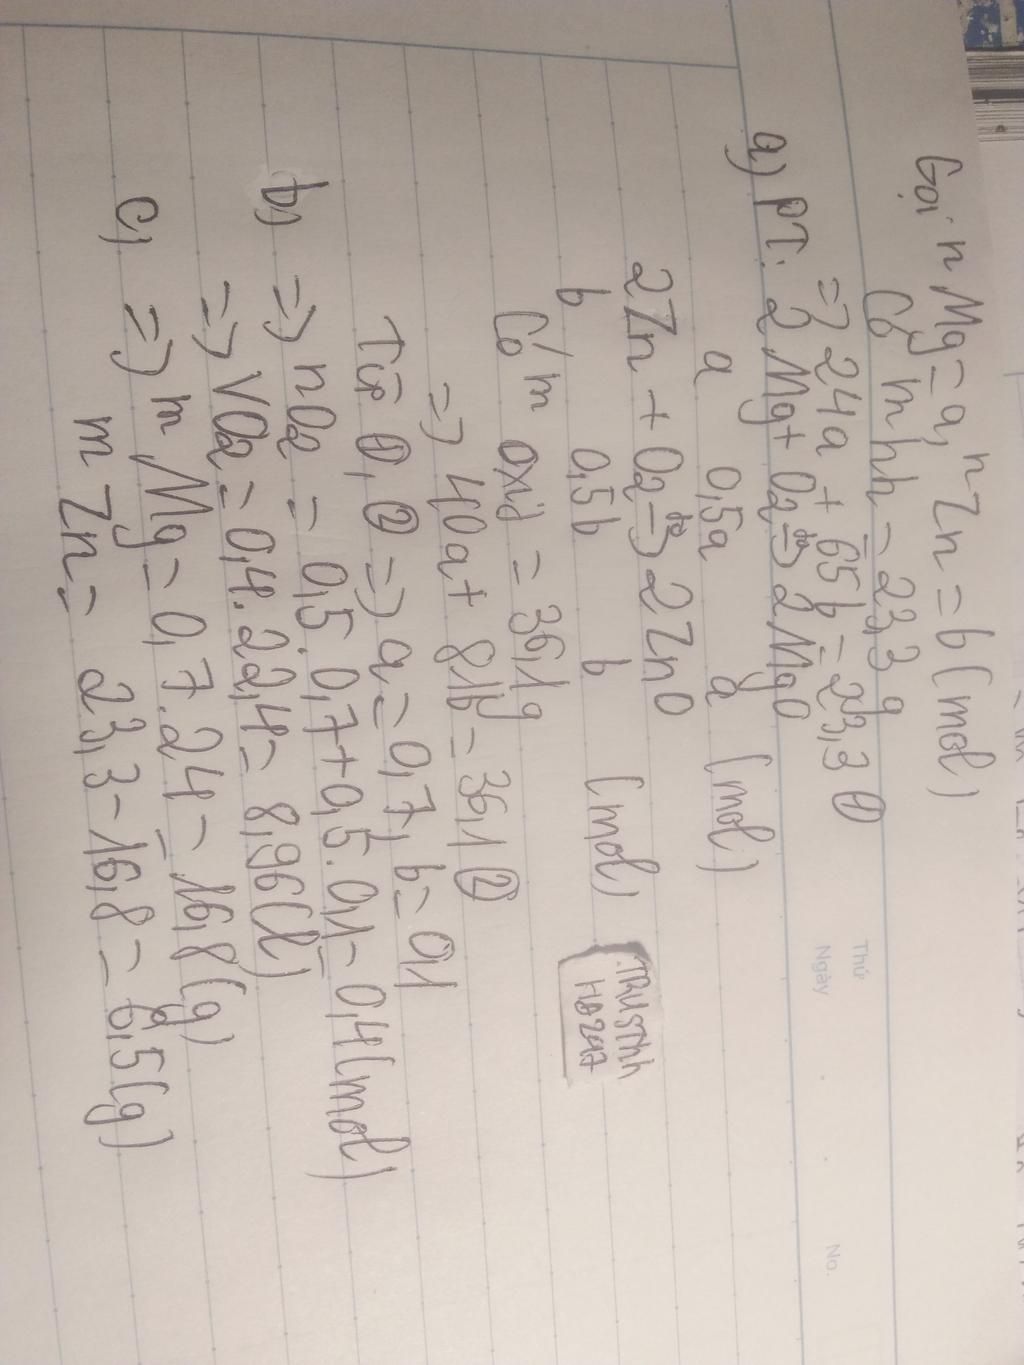 Gọi nMg = a, nZn = b (mol)
Có mhh = 23,3 g
=> 24a + 65b = 23,3 ①
a) PT: 2Mg + O2 -to-> 2MgO
a 0,5a a (mol)
2Zn + O2 -to-> 2ZnO
b 0,5b b (mol)
Trustnh
HĐ247
Có m oxid = 36,1g
=> 40a + 81b = 36,1 ②
Từ ①, ② => a = 0,7, b = 0,1
b) => nO2 = 0,5.0,7 + 0,5.0,1 = 0,4 (mol)
=> VO2 = 0,4.22,4 = 8,96 (l)
c) => mMg = 0,7.24 = 16,8 (g)
mZn = 23,3 - 16,8 = 6,5 (g)
Thứ
Ngày
No.